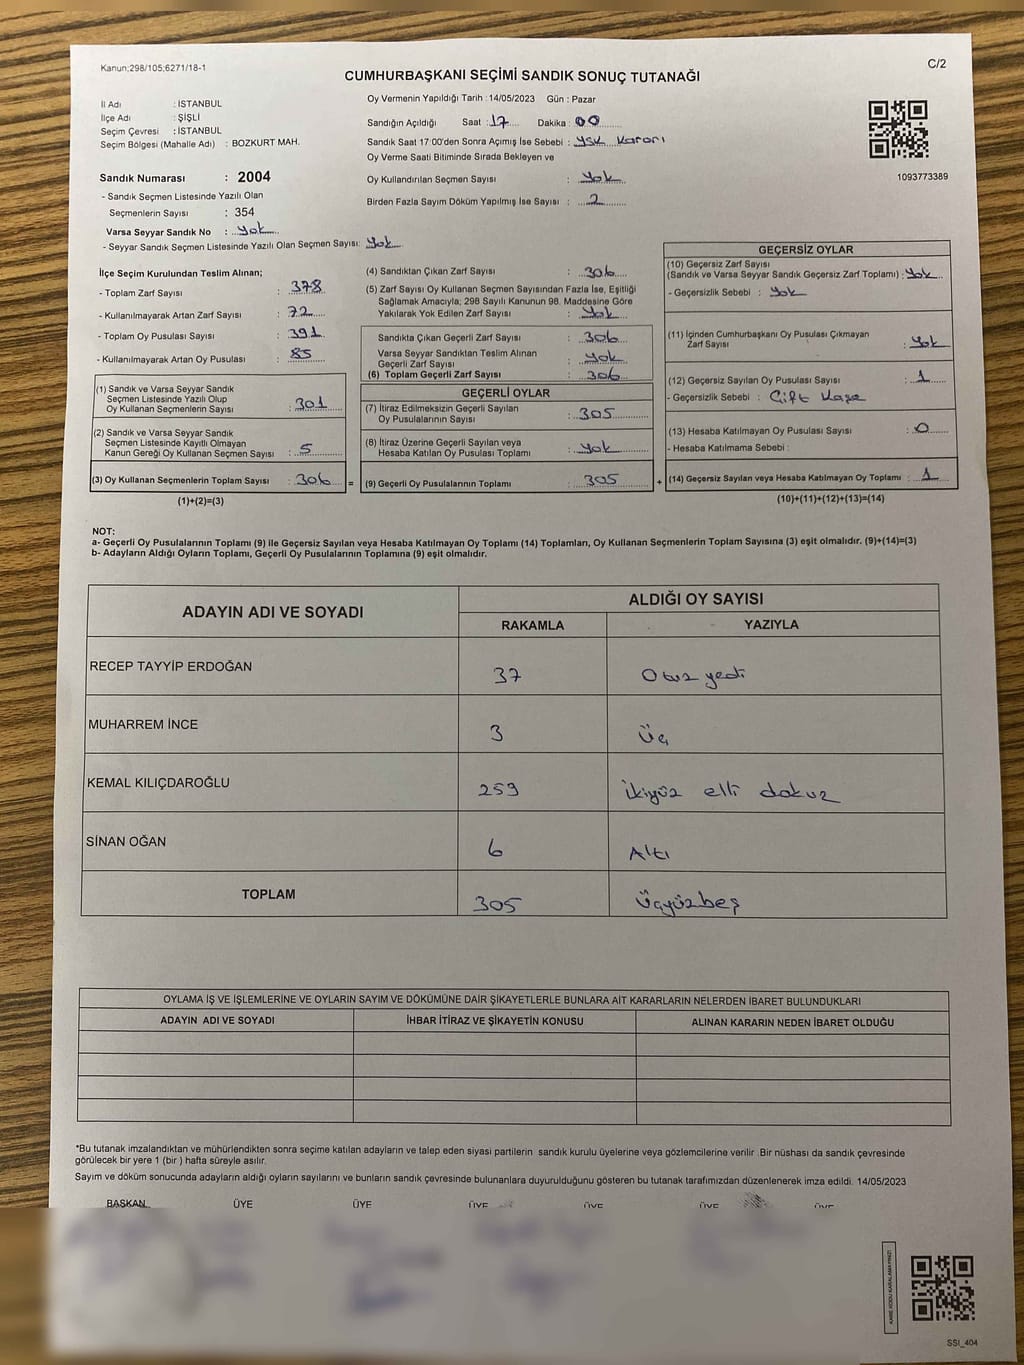 Kanun;298/105;6271/18-1
C/2
CUMHURBAŞKANI SEÇİMİ SANDIK SONUÇ TUTANAĞI
İl Adı : İSTANBUL
İlçe Adı : ŞİŞLİ
Seçim Çevresi : İSTANBUL
Seçim Bölgesi (Mahalle Adı) : BOZKURT MAH.
Sandık Numarası : 2004
- Sandık Seçmen Listesinde Yazılı Olan
Seçmenlerin Sayısı : 354
Varsa Seyyar Sandık No : Yok
- Seyyar Sandık Seçmen Listesinde Yazılı Olan Seçmen Sayısı: Yok
Oy Vermenin Yapıldığı Tarih :14/05/2023 Gün : Pazar
Sandığın Açıldığı Saat : 17 Dakika : 00
Sandık Saat 17:00'den Sonra Açımış İse Sebebi : YSK Kararı
Oy Verme Saati Bitiminde Sırada Bekleyen ve
Oy Kullandırılan Seçmen Sayısı : Yok
Birden Fazla Sayım Döküm Yapılmış İse Sayısı : 2
1093773389
İlçe Seçim Kurulundan Teslim Alınan;
- Toplam Zarf Sayısı : 378
- Kullanılmayarak Artan Zarf Sayısı : 72
- Toplam Oy Pusulası Sayısı : 391
- Kullanılmayarak Artan Oy Pusulası : 85
(1) Sandık ve Varsa Seyyar Sandık
Seçmen Listesinde Yazılı Olup
Oy Kullanan Seçmenlerin Sayısı : 301
(2) Sandık ve Varsa Seyyar Sandık
Seçmen Listesinde Kayıtlı Olmayan
Kanun Gereği Oy Kullanan Seçmen Sayısı : 5
(3) Oy Kullanan Seçmenlerin Toplam Sayısı : 306 =
(1)+(2)=(3)
(4) Sandıktan Çıkan Zarf Sayısı : 306
(5) Zarf Sayısı Oy Kullanan Seçmen Sayısından Fazla İse, Eşitliği
Sağlamak Amacıyla; 298 Sayılı Kanunun 98. Maddesine Göre
Yakılarak Yok Edilen Zarf Sayısı : Yok
Sandıkta Çıkan Geçerli Zarf Sayısı : 306
Varsa Seyyar Sandıktan Teslim Alınan
Geçerli Zarf Sayısı : Yok
(6) Toplam Geçerli Zarf Sayısı : 306
GEÇERLİ OYLAR
(7) İtiraz Edilmeksizin Geçerli Sayılan
Oy Pusulalarının Sayısı : 305
(8) İtiraz Üzerine Geçerli Sayılan veya
Hesaba Katılan Oy Pusulaları Toplamı : Yok
(9) Geçerli Oy Pusulalarının Toplamı : 305 +
GEÇERSİZ OYLAR
(10) Geçersiz Zarf Sayısı
(Sandık ve Varsa Seyyar Sandık Geçersiz Zarf Toplamı) : Yok
- Geçersizlik Sebebi : Yok
(11) İçinden Cumhurbaşkanı Oy Pusulası Çıkmayan
Zarf Sayısı : Yok
(12) Geçersiz Sayılan Oy Pusulası Sayısı : 1
- Geçersizlik Sebebi : Çift Kaşe
(13) Hesaba Katılmayan Oy Pusulası Sayısı : 0
- Hesaba Katılmama Sebebi :
(14) Geçersiz Sayılan veya Hesaba Katılmayan Oy Toplamı : 1
(10)+(11)+(12)+(13)=(14)
NOT:
a- Geçerli Oy Pusulalarının Toplamı (9) ile Geçersiz Sayılan veya Hesaba Katılmayan Oy Toplamı (14) Toplamları, Oy Kullanan Seçmenlerin Toplam Sayısına (3) eşit olmalıdır. (9)+(14)=(3)
b- Adayların Aldığı Oyların Toplamı, Geçerli Oy Pusulalarının Toplamına (9) eşit olmalıdır.
ADAYIN ADI VE SOYADI
ALDIĞI OY SAYISI
RAKAMLA YAZIYLA
RECEP TAYYİP ERDOĞAN 37 Otuz yedi
MUHARREM İNCE 3 Üç
KEMAL KILIÇDAROĞLU 259 İkiyüz elli dokuz
SİNAN OĞAN 6 Altı
TOPLAM 305 Üçyüzbeş
OYLAMA İŞ VE İŞLEMLERİNE VE OYLARIN SAYIM VE DÖKÜMÜNE DAİR ŞİKAYETLERLE BUNLARA AİT KARARLARIN NELERDEN İBARET BULUNDUKLARI
ADAYIN ADI VE SOYADI İHBAR İTİRAZ VE ŞİKAYETİN KONUSU ALINAN KARARIN NEDEN İBARET OLDUĞU
*Bu tutanak imzalandıktan ve mühürlendikten sonra seçime katılan adayların ve talep eden siyasi partilerin sandık kurulu üyelerine veya gözlemcilerine verilir .Bir nüshası da sandık çevresinde
görülecek bir yere 1 (bir ) hafta süreyle asılır.
Sayım ve döküm sonucunda adayların aldığı oyların sayılarını ve bunların sandık çevresinde bulunanlara duyurulduğunu gösteren bu tutanak tarafımızdan düzenlenerek imza edildi. 14/05/2023
BAŞKAN ÜYE ÜYE ÜYE ÜYE ÜYE ÜYE
SSI_404